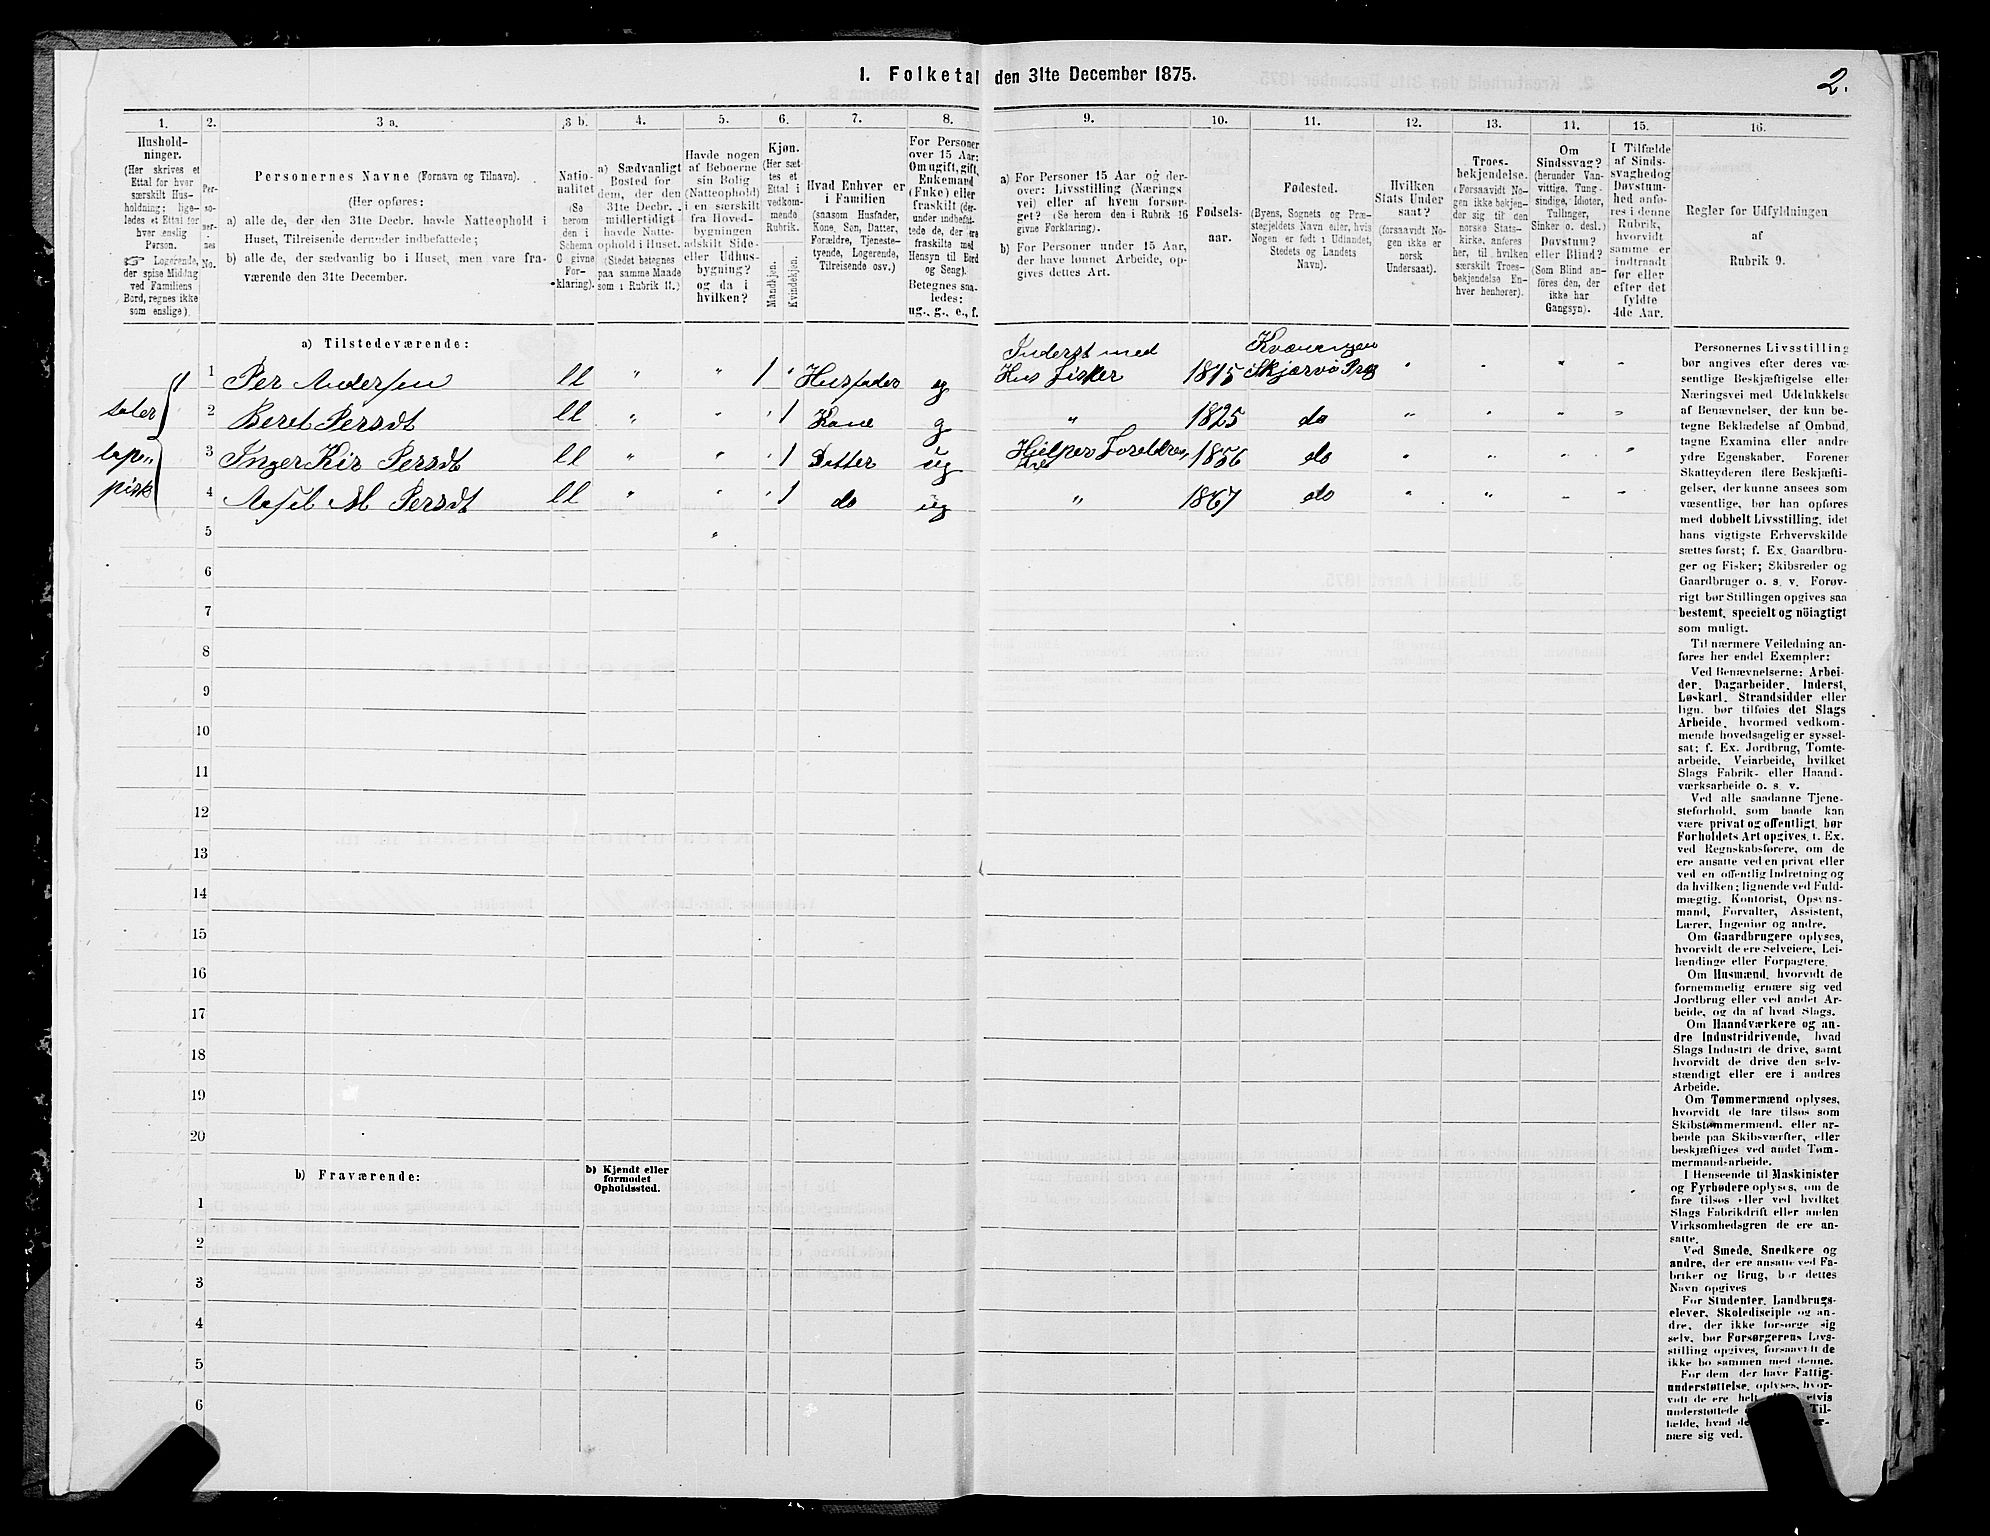 1. Folketal den 31te December 1875.
2.
1.
Hushold-
ninger.
(Her skrives et
Ettal for hver
særskilt Hus-
holdning; lige-
ledes et Ettal for
hver enslig
Person.
☞ Logerende,
der spise Middag
ved Familiens
Bord, regnes ikke
som enslige).
2.
Per-
so-
ner-
nes
No.
3 a.
Personernes Navne (Fornavn og Tilnavn).
(Her opføres:
a) alle de, der den 31te Decbr. havde Natteophold i
Huset, Tilreisende derunder indbefattede;
b) alle de, der sædvanlig bo i Huset, men vare fra-
værende den 31te December.
3 b.
Natio-
nalitet
(Se
herom
den i
Schema
C givne
For-
klaring).
4.
a) Sædvanligt
Bosted for
dem, der den
31te Decbr.
midlertidigt
havde Natte-
ophold i Huset.
(Stedet betegnes
paa samme Maade
som i Rubrik 11.)
5.
Havde nogen
af Beboerne
sin Bolig
(Natteophold)
i en særskilt
fra Hoved-
bygningen
adskilt Side-
eller Udhus-
bygning?
og da i
hvilken?
6.
Kjøn.
(Her sæt-
tes et
Ettal i
vedkom-
mende
Rubrik.
Mandkjøn.
Kvindekjøn.
7.
Hvad Enhver er
i Familien
(saasom Husfader,
Kone, Søn, Datter,
Forældre, Tjeneste-
tyende, Logerende,
Tilreisende osv.)
8.
For Personer
over 15 Aar:
Om ugift, gift,
Enkemand
(Enke) eller
fraskilt (der-
under indbefat-
tede de, der ere
fraskilte med
Hensyn til Bord
og Seng).
Betegnes saa-
ledes:
ug., g., e., f.
9.
a) For Personer 15 Aar og der-
over: Livsstilling (Nærings
vei) eller af hvem forsør-
get? (Se herom den i Rubrik 16
givne Forklaring).
b) For Personer under 15 Aar,
der have lønnet Arbeide, op-
gives dettes Art.
10.
Fødsels-
aar.
11.
Fødested.
(Byens, Sognets og Præ-
stegjeldets Navn eller, hvis
Nogen er født i Udlandet,
Stedets og Landets
Navn).
12.
Hvilken
Stats Under
saat?
(forsaavidt No-
gen ikke er
norsk
Undersaat).
13.
Troes-
bekjendelse.
(Forsaavidt No-
gen ikke bekjen-
der sig til den
norske Stats-
kirke, anføres
her, til hvilken
særskilt Troes-
bekjendelse En-
hver henhører).
14.
Om
Sindssvag?
(herunder Van-
vittige, Tung-
sindige, Idioter,
Tullinger,
Sinker o. desl.)
Døvstum?
eller Blind?
(Som Blind an-
føres den, der
ikke har
Gangsyn).
15.
I Tilfælde
af Sinds-
svaghed og
Døvstum-
hed anfø-
res i denne
Rubrik,
hvorvidt
samme er
indtraadt
før eller
efter det
fyldte
4de Aar.
16.
Regler for Udfyldningen
af
Rubrik 9.
a) Tilstedeværende:
1 Per Andersen ll " " 1 " Husfader g Inderst med Hus Fisker 1815 Kvænangen Skjærvø Præg
2 Beret Persdt ll " " " 1 Kone g " 1825 do
3 Inger Kir Persdt ll " " " 1 Datter ug Hjelper Foreldrene 1856 do
4 Aasel M Persdt ll " " " 1 do ug " 1867 do
taler
lapp"
pisk
5
6
7
8
9
10
11
12
13
14
15
16
17
18
19
20
b) Fraværende:
b) Kjendt eller
formodet
Opholdssted.
1
2
3
4
5
6
Personernes Livsstilling
bør angives efter deres væ-
sentlige Beskjæftigelse eller
Næringsvei med Udelukkelse
af Benævnelser, der kun be-
tegne Beklædelse af Ombud,
tagne Examina eller andre
ydre Egenskaber. Forener
Skatteyderen flere Beskjæfti-
gelser, der kunne ansees som
væsentlige, bør han opføres
med dobbelt Livsstilling, idet
hans vigtigste Erhvervskilde
sættes først; f. Ex. Gaardbru-
ger og Fisker; Skibsreder og
Gaardbruger o. s. v. Forøv-
rigt bør Stillingen opgives saa
bestemt, specielt og nöiagtigt
som muligt.
Til nærmere Veiledning an-
føres her endel Exempler:
Ved Benævnelserne: Arbei-
der, Dagarbeider, Inderst,
Løskarl, Strandsidder eller
lign. bør tilføies det Slags
Arbeide, hvormed vedkom-
mende hovedsagelig er syssel-
sat; f. Ex. Jordbrug, Tomte-
arbeide, Veiarbeide, hvilket
Slags Fabrik- eller Haand-
værksarbeide o. s. v.
Ved alle saadanne Tjene-
steforhold, som baade kan
være privat og offentligt, bør
Forholdets Art opgives, t. Ex.
ved Regnskabsførere, om de
ere ansatte ved en privat eller
ved en offentlig Indretning og
da hvilken; lignende ved Fuld-
mægtig, Kontorist, Opsyns-
mand, Forvalter, Assistent,
Lærer, Ingeniør og andre.
Om Gaardbrugere oplyses,
hvorvidt de ere Selveiere, Lei-
lændinge eller Forpagtere.
Om Husmænd, hvorvidt de
fornemmelig ernære sig ved
Jordbrug eller ved andet Ar-
beide, og da af hvad Slags.
Om Haandværkere og an-
dre Industridrivende, hvad
Slags Industri de drive, samt
hvorvidt de drive den selv-
stændigt eller ere i andres
Arbeide.
Om Tømmermænd oplyses,
hvorvidt de fare tilsøs som
Skibstømmermænd, eller ar-
beide paa Skibsværfter, eller
beskjæftiges ved andet Tøm-
mermand-arbeide.
I Henseende til Maskinister
og Fyrbødere oplyses, om de
fare tilsøs eller ved hvilket
Slags Fabrikdrift eller anden
Virksomhedsgren de ere an-
satte.
Ved Smede, Snedkere og
andre, der ere ansatte ved Fa-
briker og Brug, bør dettes
Navn opgives
For Studenter, Landbrugs-
elever, Skoledisciple og an-
dre, der ikke forsørge sig
selv, bør Forsørgerens Livs-
stilling opgives, forsaavidt de
ikke bo sammen med denne.
For dem, der have Fattig-
understøttelse, oplyses, hvor-
vidt de ere helt etvis
understøttede Til-
fælde, hvad de er-
nære sig ved.